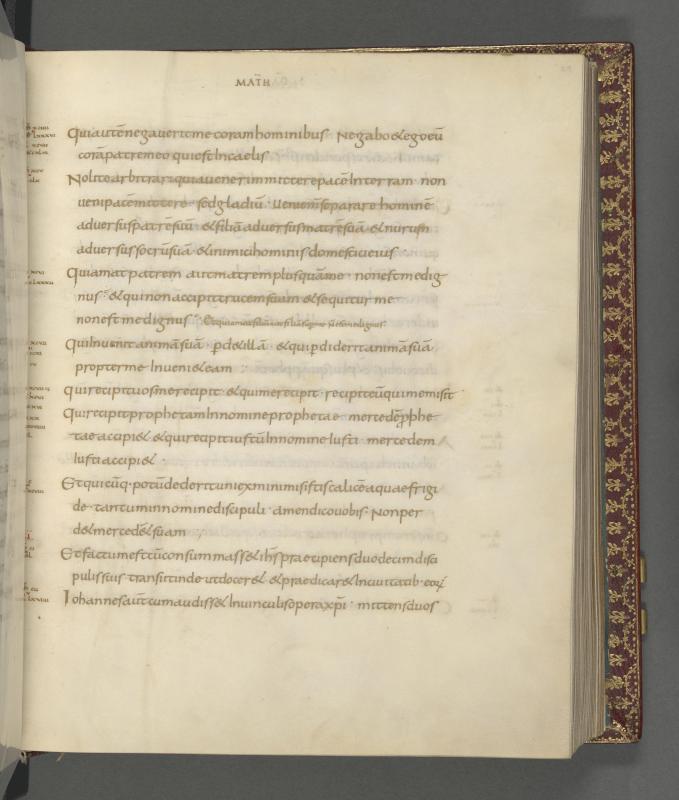 MATH
Qui autē negaverit me coram hominibus · Negabo & ego eū
corā patre meo qui est In caelis
Nolite arbitrari quia venerim mittere pacē In terram · non
veni pacē mittere · sed gladiū · veni enī separare hominē
adversus patrē suū · & filiā adversus matrē suā · & nurum
adversus socrū suā · & inimici hominis domestici eius
Qui amat patrem aut matrem plus quā me · non est me dig
nus · & qui non accipit crucem suam & sequitur me
non est me dignus · Et qui amat filiū aut filiā super me n̄ est me dignus
Qui Invenit animā suā · p̱d& illā · & qui p̱diderit animā suā
propter me Inveni& eam
qui recipit vos me recipit · & qui me recipit · recipit eū qui me misit
Qui recipit prophetam In nomine prophetae · mercedē p̱phe
tae accipi& · & qui recipit iustū In nomine Iusti · mercedem
Iusti accipi&
Et quicūq· potū dederit uni ex minimis istis calicē aquae frigi
de · tantum in nomine discipuli · amen dico vobis · Non per
d& mercedē suam
Et factum est cū consummass& ih̄s praecipiens duodecim disci
pulis suis · transiit inde · ut docer& · & praedicar& In civitatib· eorū
Iohannes aūt cum audiss& In vinculis opera xp̄i · mittens duos